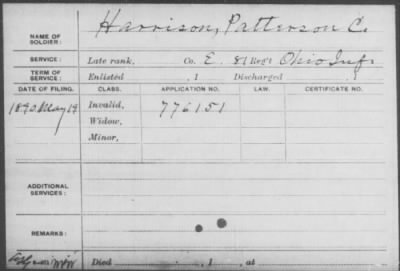 NAME OF SOLDIER: Harrison, Patterson C.
SERVICE: Late rank, Co. E. 81 Reg't Ohio Inf.
TERM OF SERVICE: Enlisted , 1 Discharged , 1
DATE OF FILING. CLASS. APPLICATION NO. LAW. CERTIFICATE NO.
1890 May 19 Invalid, 776151
Widow,
Minor,
ADDITIONAL SERVICES:
REMARKS:
Died , 1 , at